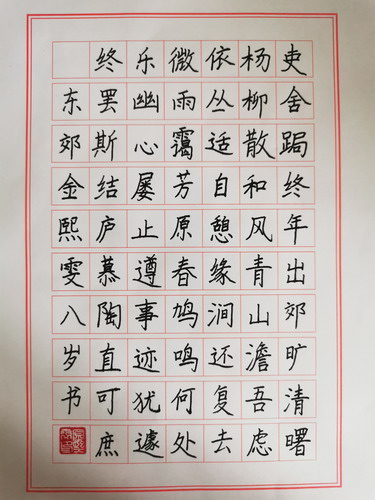 吏舍跼终年出郊旷清曙
杨柳散和风青山澹吾虑
依丛适自憩缘涧还复去
微雨霭芳原春鸠鸣何处
乐幽心屡止遵事迹犹遽
终罢斯结庐慕陶直可庶
东郊金熙雯八岁书